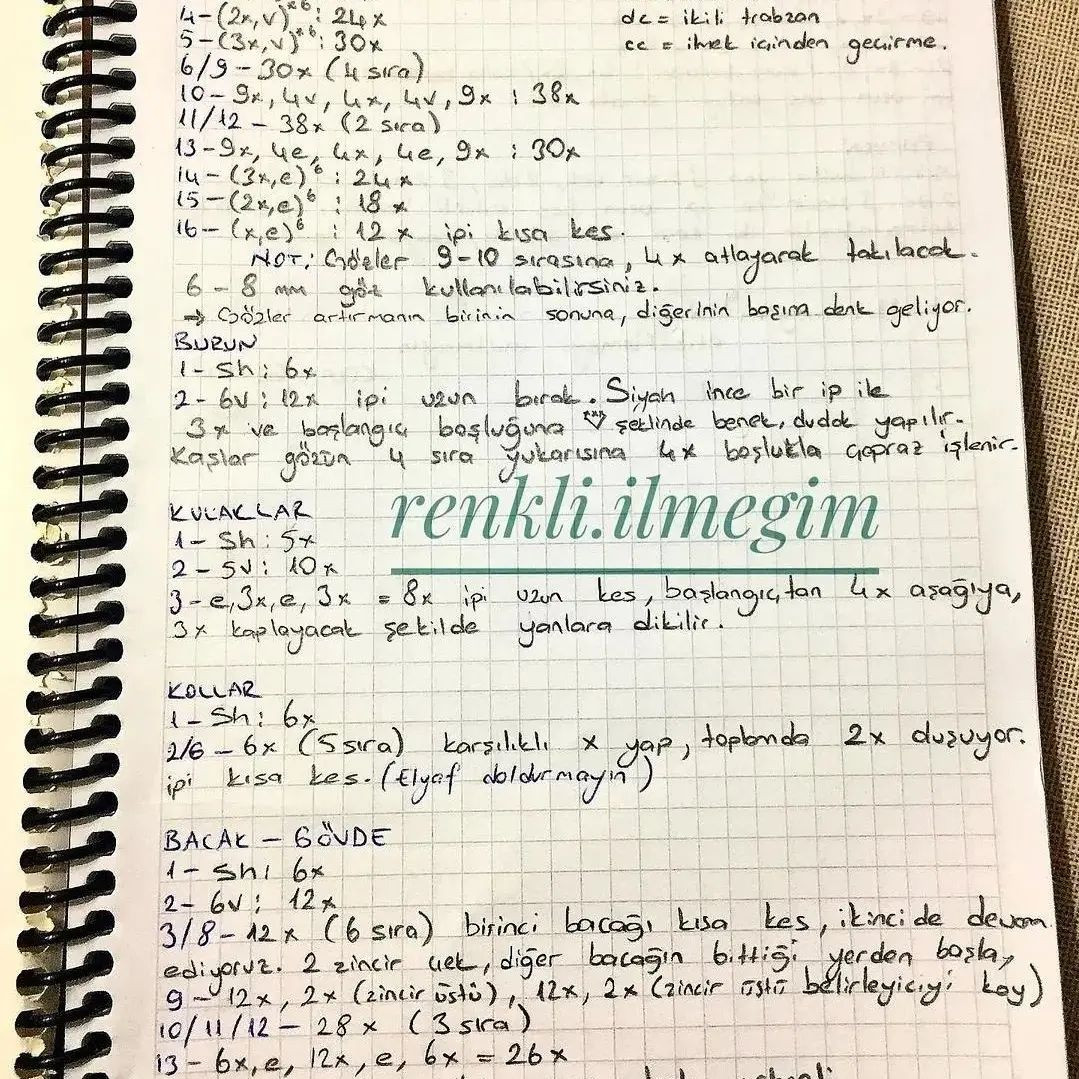 4-(2x,v)*6: 24x
dc = ikili trabzan
5-(3x,v)*6: 30x
cc = ilmek içinden geçirme.
6/9 - 30x (4 sıra)
10- 9x, 4v, 4x, 4v, 9x : 38x
11/12 - 38x (2 sıra)
13-9x, 4e, 4x, 4e, 9x : 30x
14- (3x,e)6 : 24x
15-(2x,e)6 : 18x
16- (x,e)6 : 12x ipi kısa kes.
NOT: Gözler 9-10 sırasına, 4x atlayarak takılacak.
6 - 8 mm göz kullanılabilirsiniz.
→ Gözler artırmanın birinin sonuna, diğerinin başına denk geliyor.
BURUN
1- Sh: 6x
2- 6v: 12x ipi uzun bırak. Siyah ince bir ip ile
3x ve başlangıç boşluğuna şeklinde benek, dudak yapılır.
Kaşlar gözün 4 sıra yukarısına 4x boşlukla çapraz işlenir.
renkli.ilmegim
KULAKLAR
1- Sh: 5x
2- 5v: 10x
3-e,3x,e,3x = 8x ipi uzun kes, başlangıçtan 4x aşağıya,
3x kaplayacak şekilde yanlara dikilir.
KOLLAR
1- Sh: 6x
2/6 - 6x (5 sıra) karşılıklı x yap, toplamda 2x düşüyor.
ipi kısa kes. (Elyaf doldurmayın)
BACAK - GÖVDE
1- Sh: 6x
2- 6v: 12x
3/8- 12x (6 sıra) birinci bacağı kısa kes, ikincide devam
ediyoruz. 2 zincir çek, diğer bacağın bittiği yerden başla,
9- 12x, 2x (zincir üstü), 12x, 2x (zincir üstü belirleyiciyi koy)
10/11/12 - 28x (3 sıra)
13- 6x,e, 12x, e, 6x = 26x